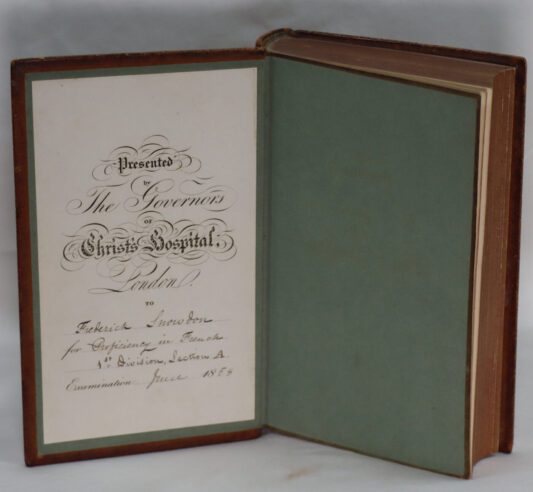 Presented
by
The Governors
OF
Christ's Hospital.
London.
TO
Frederick Snowdon
for Proficiency in French
1st Division, Section A.
Examination June